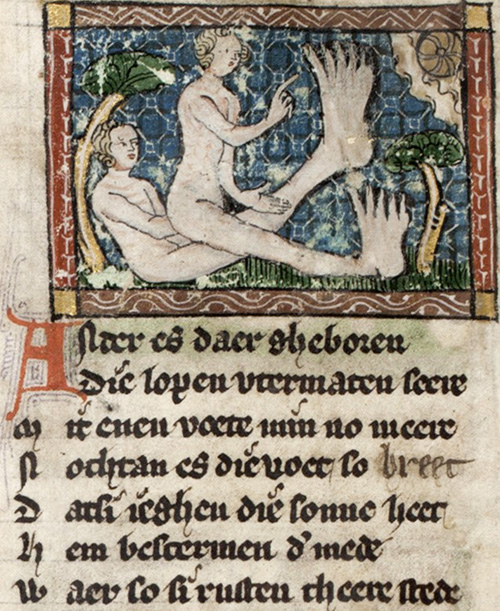 ANder es daer gheboren
die lopen vtermaten seere
M it enen voete min no meere
N ochtan es die voet so breet
D atsi ieghen die sonne heet
H em bescermen d' mede
W aer so si rusten theere stede